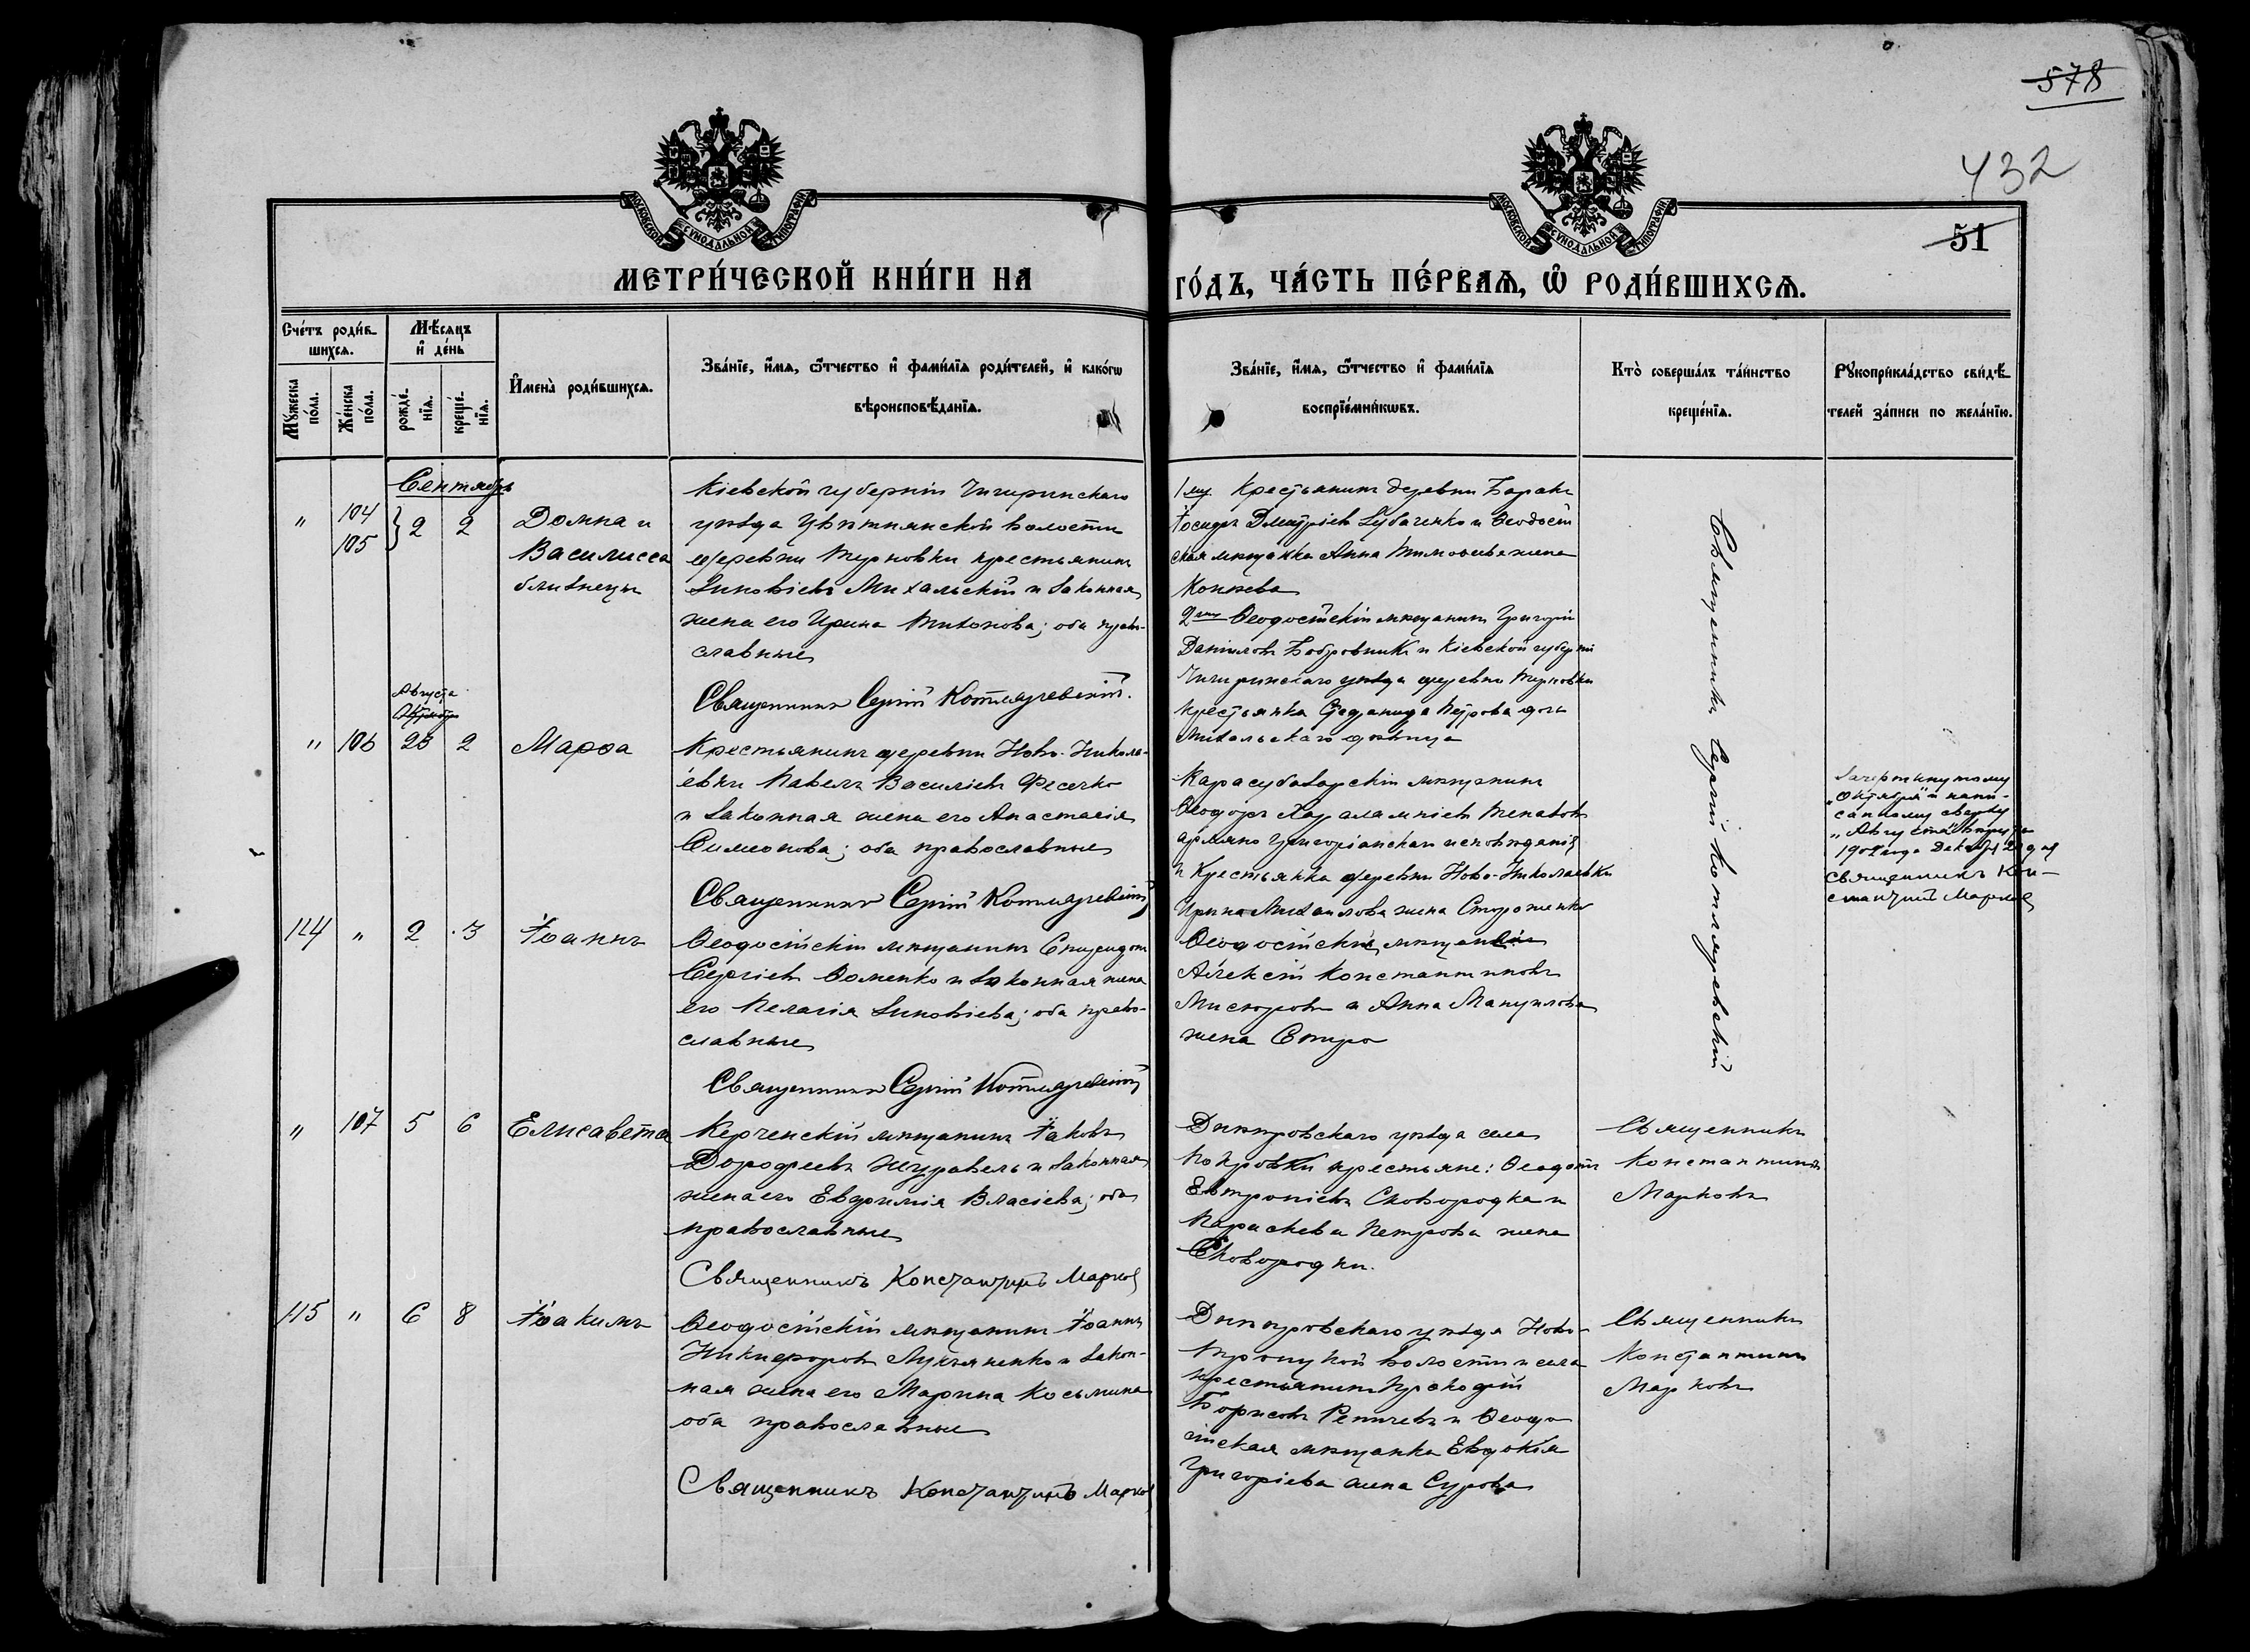 578
432
51
МОСКОВСКОЙ СѴНОДАЛЬНОЙ ТИПОГРАФІИ
МОСКОВСКОЙ СѴНОДАЛЬНОЙ ТИПОГРАФІИ
МЕТРИ́ЧЕСКОЙ КНИ́ГИ НА
ГО́ДЪ, ЧА́СТЬ ПЕ́РВАѦ, Ѽ РОДИ́ВШИХСѦ.
Сче́тъ роди́в
шихсѧ.
Мꙋ́жеска
по́ла.
Же́нска
по́ла.
Мѣ́сѧцъ
и҆ де́нь
рожде́-
нїѧ.
креще́-
нїѧ.
И҆мена̀ роди́вшихсѧ.
Зва́нїе, и҆́мѧ, ѻ҆́тчество и҆ фами́лїѧ роди́телей, и҆ како́гѡ
вѣроисповѣ́данїѧ.
Зва́нїе, и҆́мѧ, ѻ҆́тчество и҆ фами́лїѧ
воспрїе́мникѡвъ.
Кто̀ соверша́лъ та́инство
креще́нїѧ.
Рꙋкоприкла́дство свидѣ́
телей за́писи по жела́нїю.
Сентябрь
"
104
105
2
2
Домна и
Василисса
близнецы
Кіевской губерніи Чигиринскаго
уѣзда Цвѣтнянской волости
деревни Терновки крестьянинъ
Зиновіевъ Михальскій и законная
жена его Ирина Тихонова; оба право-
славные
Священникъ Сергій Котляревскій.
1му Крестьянинъ деревни Баракъ
Іосифъ Дмитріевъ Губаченко и Ѳеодосій
ская мѣщанка Анна Тимофеева жена
2му Ѳеодосійскій мѣщанинъ Григорій
Даніиловъ Бобровникъ и Кіевской губерніи
Чигиринскаго уѣзда деревни Терновки
крестьянка Стефанида Петрова дочь
Михальскаго дѣвица
Священникъ Сергій Котляревскій
Августа
Октября
"
106
23
2
Марѳа
Крестьянинъ деревни Ново-Никола-
евки Павелъ Василіевъ Фесечко
и законная жена его Анастасія
Симеонова; оба православные
Священникъ Сергій Котляревскій
Карасубазарскій мѣщанинъ
Ѳеодоръ Харалампіевъ
армяно григоріанскаго исповѣданія
и Крестьянка деревни Ново-Николаевки
Ирина Михаилова жена Стороженко
Зачеркнутому
"Октября" и напи-
санному сверху
"Августа" вѣрить
Священникъ Кон-
стантинъ Марковъ
114
"
2
3
Іоаннъ
Ѳеодосійскій мѣщанинъ Спиридонъ
Сергіевъ Ѳоменко и законная жена
его Пелагія Зиновіева; оба право-
славные
Священникъ Сергій Котляревскій
Ѳеодосійскіе мѣщане
Алексій Константиновъ
и Анна Мануилова
жена
"
107
5
6
Елисавета
Керченскій мѣщанинъ Іаковъ
Дорофеевъ Журавель и законная
жена его Евфимія Власіева; оба
православные
Священникъ Константинъ Марковъ
Днѣпровскаго уѣзда села
Покровки крестьяне: Ѳеодотъ
Евтропіевъ Сковородка и
Параскева Петрова жена
Сковородки.
Священникъ
Константинъ
Марковъ
115
"
6
8
Іоакимъ
Ѳеодосійскій мѣщанинъ Іоаннъ
Никифоровъ Лукьяненко и закон-
ная жена его Марина Косьмина
оба православные
Священникъ Константинъ Марковъ
Днѣпровскаго уѣзда Ново-
Троицкой волости и села
крестьянинъ Прокофій
Борисовъ и Ѳеодо
сійская мѣщанка Евдокія
Григоріева жена Сурова
Священникъ
Константинъ
Марковъ